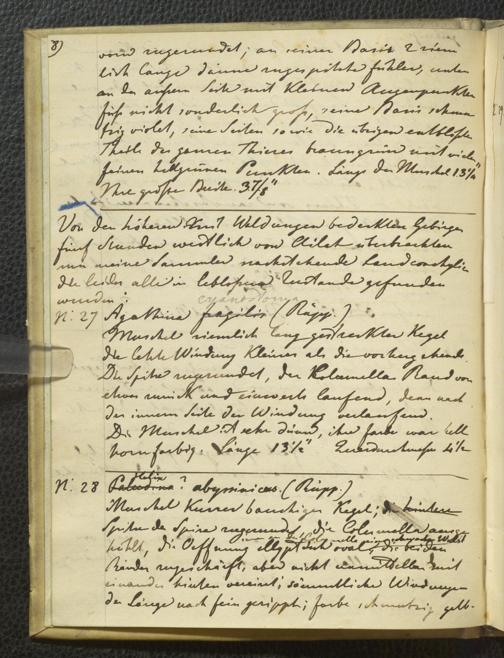 8)
vorn zugerundet; an seiner Basis 2 ziem
lich lange dünne zugespitzte Fühler, unten
an der äussern Seite mit kleinen Augenpunkten
Fuss nicht sonderlich gross, seine Basis schmu
zig violet, seine Seiten so wie die übrigen entblössten
Theile des ganzen Thieres braungrün mit vielen
feinen hellgrünen Punkten. Länge der Muschel 13½'''
Ihre grösste Breite 3 7/8'''
Von den höheren mit Waldungen bedeckten Gebirgen
fünf Stunden westlich von Ailet überbrachten
mir meine Sammler nachstehende Landconchylien
die leider alle in leblosem Zustande gefunden
wurden:
cyanostoma
N: 27 Agathina fragilis (Rüpp.)
Muschel ziemlich lang gestreckter Kegel
die letzte Windung kleiner als die vorhergehende.
Die Spitze zugerundet, der Kolumella Rand vorn
etwas zurück und einwerts laufend, dann nach
der innern Seite der Windung verlaufend.
Die Muschel ist sehr dünn, ihre Farbe war hell
hornfarbig. Länge 13½''' Querdurchmesser 4½'''
Helix
N: 28 Paludina? abyssinicus. (Rüpp.)
Muschel kurzer bauchiger Kegel; die
Spitze der Spira zugerundet, die Colum­ella ausge
höhlt, die Oeffnung elliptisch oval, die beiden
Ränder zugeschärft, aber nicht mit
einander hinten vereint; sämmtliche Windungen
der Länge nach fein gerippt; Farbe schmutzig gelb-